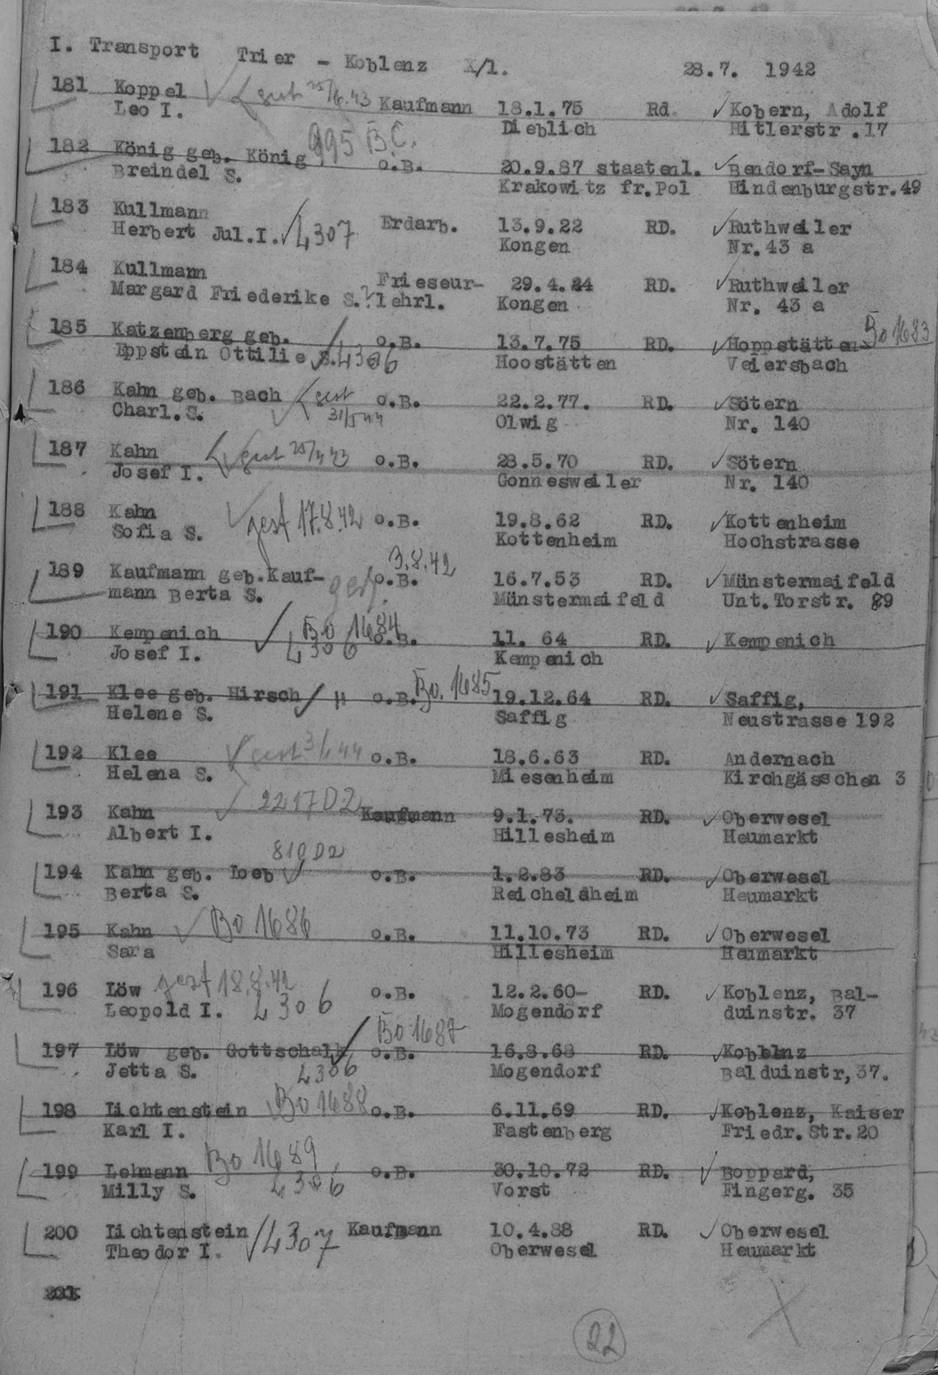 I. Transport Trier - Koblenz X/1. 28.7. 1942
181 Koppel gest 25/6.43 Kaufmann 18.1.75 Rd. Kobern, Adolf
Leo I. Dieblich Hitlerstr.17
182 König geb. König 995 BC. o.B. 20.9.87 staatenl. Bendorf-Sayn
Breindel S. Krakowitz fr.Pol Hindenburgstr.49
183 Kullmann Erdarb. 13.9.22 RD. Ruthweiler
Herbert Jul.I. L307 Kongen Nr.43 a
184 Kullmann Frieseur- 29.4.24 RD. Ruthweiler
Margard Friederike S. lehrl. Kongen Nr. 43 a
185 Katzenberg geb. o.B. 13.7.75 RD. Hoppstätten Bo 1683
Eppstein Ottilie S. L306 Hoostätten Veiersbach
186 Kahn geb. Bach gest o.B. 22.2.77. RD. Sötern
Charl.S. 31/5 44 Olwig Nr. 140
187 Kahn gest 25/4 43 o.B. 28.5.70 RD. Sötern
Josef I. Gonnesweiler Nr. 140
188 Kahn gest 17.8.42 o.B. 19.8.62 RD. Kottenheim
Sofia S. Kottenheim Hochstrasse
3.8.42
189 Kaufmann geb.Kauf- gest. o.B. 16.7.53 RD. Münstermaifeld
mann Berta S. Münstermaifeld Unt.Torstr. 89
190 Kempenich Bo 1684 o.B. 11. 64 RD. Kempenich
Josef I. L306 Kempenich
191 Klee geb. Hirsch " o.B. Bo. 1685 19.12.64 RD. Saffig,
Helene S. Saffig Neustrasse 192
192 Klee gest 3/1 44 o.B. 18.6.63 RD. Andernach
Helena S. Miesenheim Kirchgässchen 3
193 Kahn 2217 D2 Kaufmann 9.1.73. RD. Oberwesel
Albert I. Hillesheim Heumarkt
810 D2
194 Kahn geb. Loeb o.B. 1.2.83 RD. Oberwesel
Berta S. Reichelsheim Heumarkt
195 Kahn Bo 1686 o.B. 11.10.73 RD. Oberwesel
Sara Hillesheim Heumarkt
196 Löw gest 18.8.42 o.B. 12.2.60- RD. Koblenz, Bal-
Leopold I. L306 Mogendorf duinstr. 37
Bo 1687
197 Löw geb. Gottschalk o.B. 16.8.68 RD. Koblenz
Jetta S. L306 Mogendorf Balduinstr,37.
198 Lichtenstein Bo 1688 o.B. 6.11.69 RD. Koblenz, Kaiser
Karl I. Fastenberg Friedr.Str.20
199 Lehmann Bo 1689 o.B. 30.10.72 RD. Boppard,
Milly S. L306 Vorst Fingerg. 35
200 Lichtenstein L307 Kaufmann 10.4.88 RD. Oberwesel
Theodor I. Oberwesel Heumarkt
22